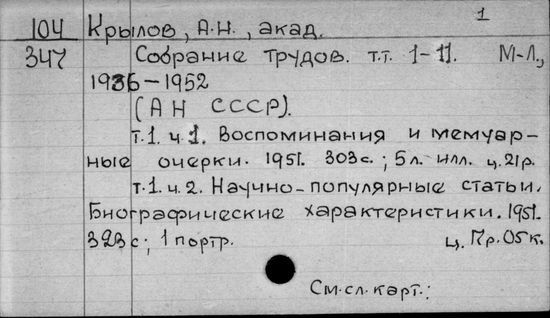 1
104 Крылов, А.Н., акад.
347 Собрание трудов. т.т. 1-11. М-Л.,
1936-1952
(АН СССР).
т.1. ч.1. Воспоминания и мемуар-
ные очерки. 1951. 303с.; 5л. илл. ц. 21р.
т.1. ч.2. Научно-популярные статьи.
Биографические характеристики. 1951.
323с; 1 портр. ц. 17р. 05к.
См. сл. карт.: